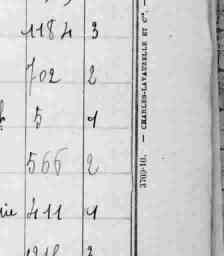 1184 3
702 2
5 1
566 2
411 1
3769-10. — CHARLES-LAVAUZELLE ET Cie. —